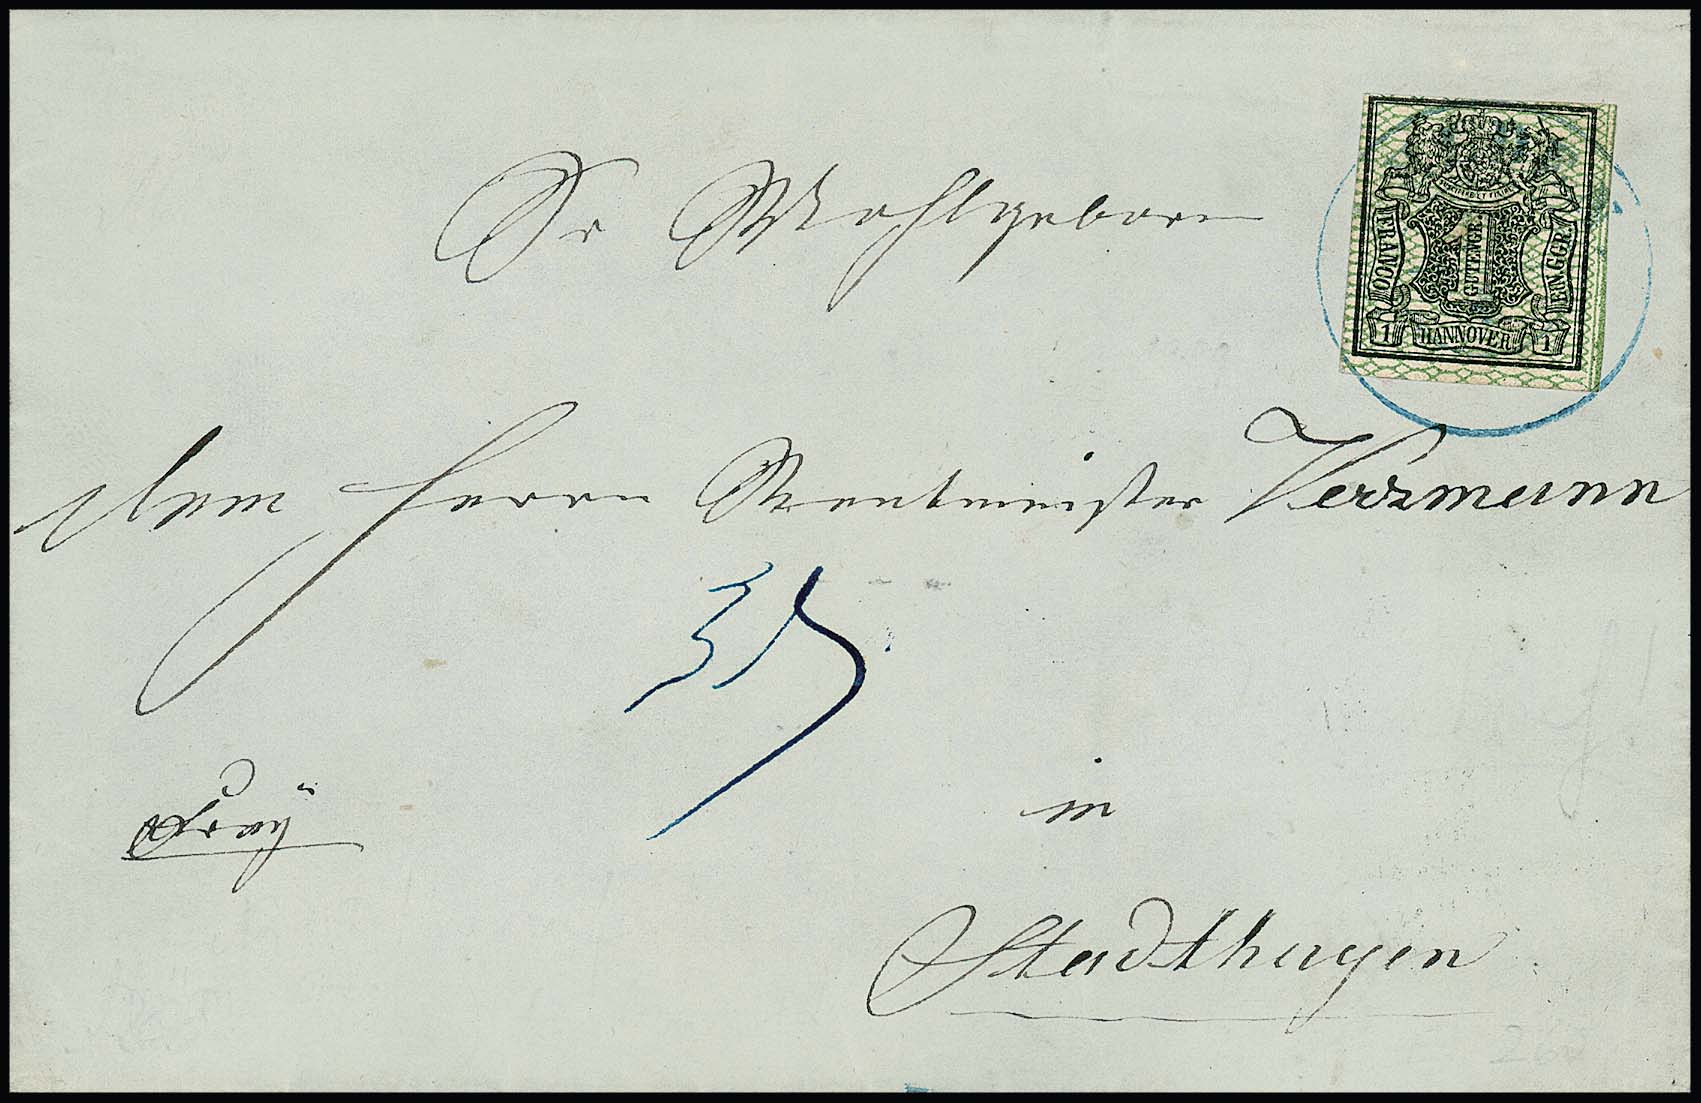 FRANCO
1 GUTENGR.
EIN.GGR
1 HANNOVER 1
Sr Wohlgeboren
dem Herrn Rentmeister Verzmann
35
in
Stadthagen